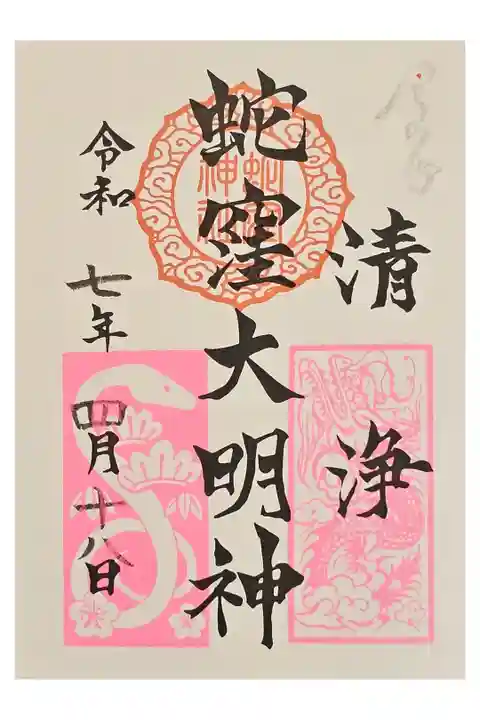 清浄
蛇窪大明神
令和七年四月十八日
蛇窪
神社